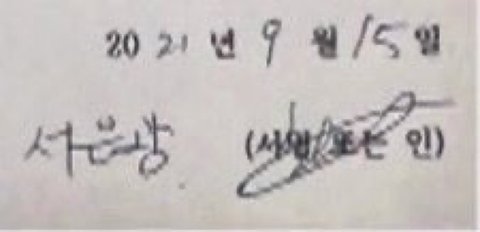 2021년 9월 15일
(서명 또는 인)